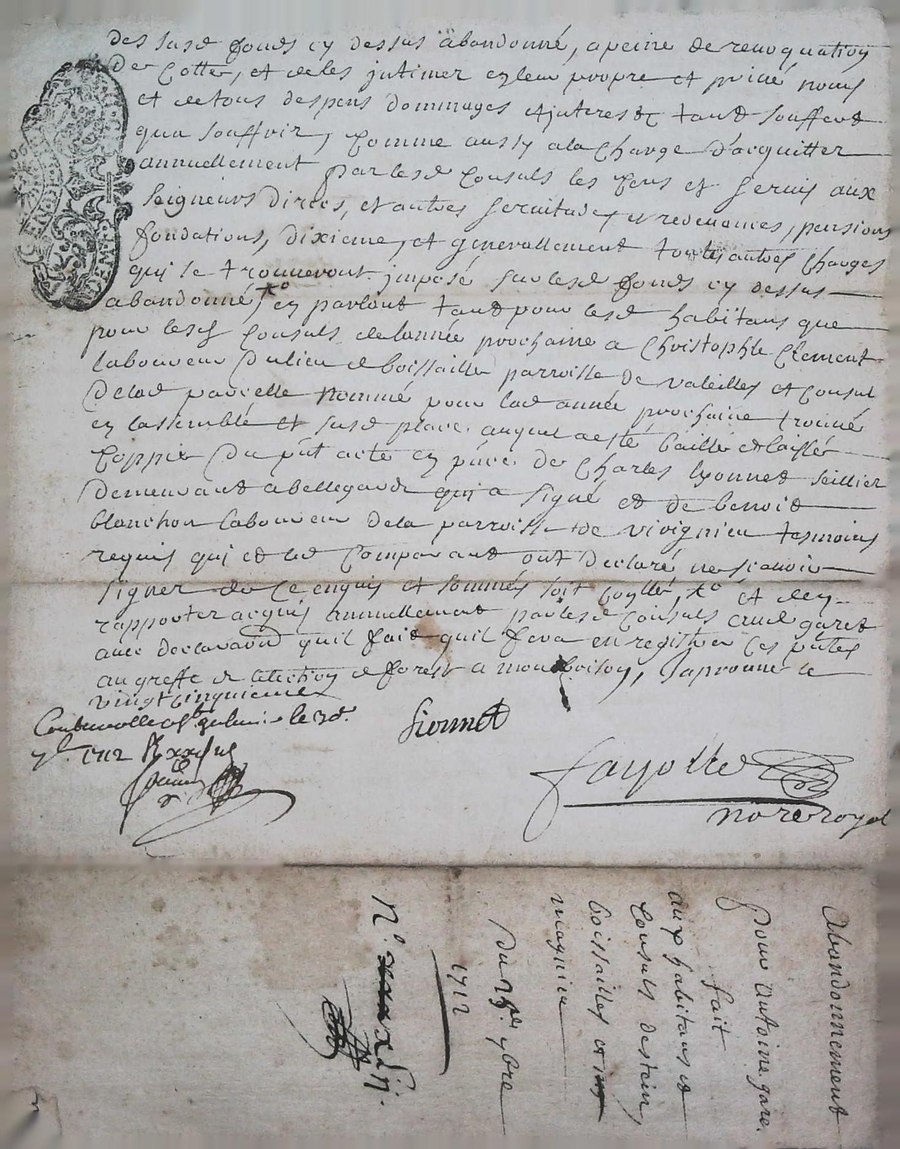 des susd fonds cy dessus abandonné, a peine de revoquation
de Cotte, et de les jntimer en leur propre et privé noms
et de tous despens dommages et jnterest tant souffert
qua souffrir, Comme aussy a la Charge d'acquitter
annuellement par lesd Consuls les Cens et servis aux
seigneurs directs, et autres servitudes et redevances, pensions
fondations, dixieme, et generallement toutes autres Charges
qui se trouveront jmposé sur lesd fonds cy dessus
abandonné, en parlant tant pour lesd habitans que
pour lesd Consuls de lannée prochaine a Christophle Clement
laboureur du lieu de boissailles parroisse de valeilles et Consul
de lad parcelle nommé pour lad année prochaine trouvé
en lassemblé et susd place auquel a esté baillé et laissé
Coppie du pnt acte en pnce de Charles Lyonnet sellier
demeurant a bellegarde qui a signé et de benoit
blanchon laboureur de la parroisse de virignieu tesmoins
requis qui et led Comparant ont declaré ne scavoir
signer de ce enquis et sommés soit et den
rapporter acquis annuellement par lesd Consuls aud garet
avec declaration quil fait quil fera enregistrer ces pntes
au greffe de lelection de forest a montbrison, japrouve le
vingt cinquieme
Controuolle a le 30e
7b. 1712
Lionnet
fayolle
no re royal
Abandonnement
pour antoine gare
fait
aux habitans et
Consuls destein,
boissailles et
magnieu
Du 25e 7bre
1712
N.o